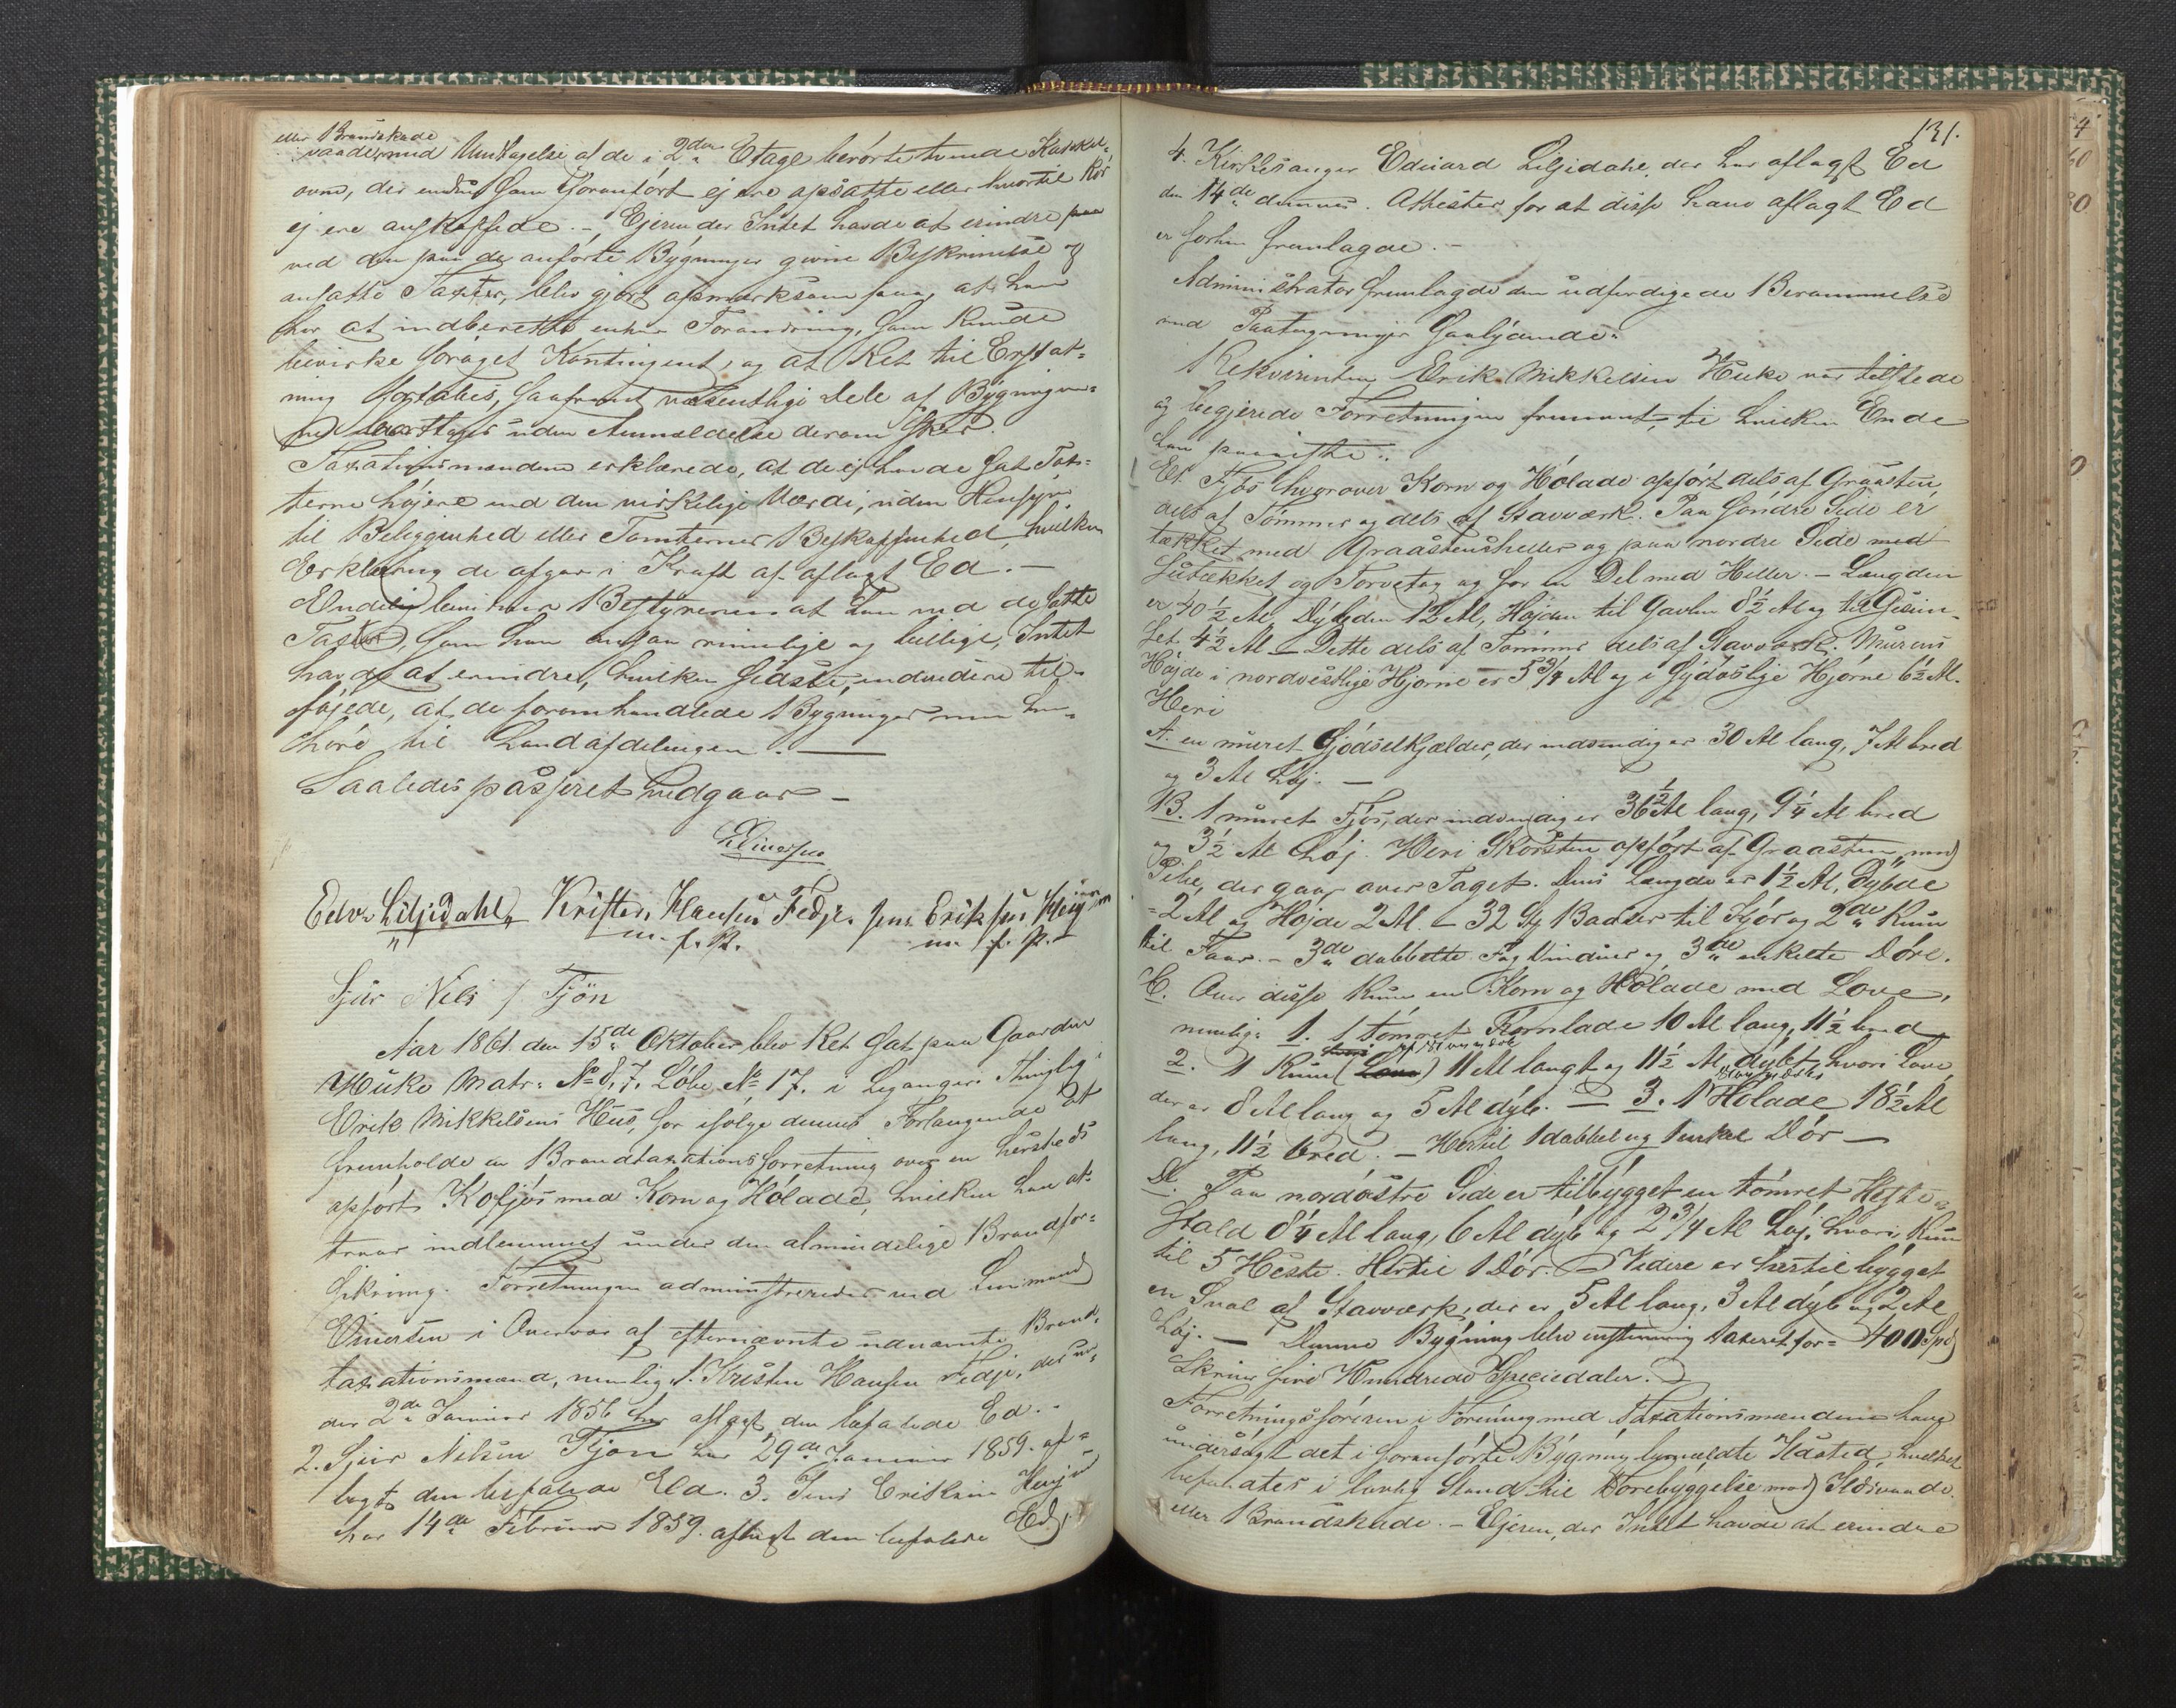 eller Brandskade
vaade, med Undtagelse af de i 2den Etage berørte tvende Kakkel-
ovne, der endnu som foranført ej ere opsatte eller hvortil Rør
ej ere anskaffede. – Ejeren der Intet havde at erindre
ved den paa de anførte Bygninger givne Beskrivelse og
ansatte Taxter, blev gjort opmærksom paa, at han
har at indberette enhver Forandring, som kunde
bevirke forøget Kontingent, og at Ret til Erstat-
ning fortabes, saafremt væsentlige Dele af Bygninger-
ne borttages uden Anmeldelse derom sker.
Taxationsmændene erklærede, at de ej havde sat Tax-
terne højere end den virkelige Værdi, uden Hensyn
til Beliggenhed eller Tomternes Beskaffenhed, hvilken
Erklæring de afgav i Kraft af aflagt Ed. –
Endelig bemærker Bestyreren at han ved de satte
Taxter, som han ansaa rimelige og billige, Intet
havde at erindre, hvilken sidste, endvidere til-
føjede, at de foromhandlede Bygninger maa hen-
høre til Landafdelingen. —
Saaledes passeret vedgaar –
Edv. Liljedahl Kristen Hansen Fedje. Jens Eriksen Henjum
m. f. P. m. f. P.
Sjur Nils / Tjøn
Aar 1861 den 15de Oktober blev Ret sat paa Gaarden
Huke Matr: No 8, 7. Løbe No 17. i Leganger Thinglag i
Erik Mikkelsens Hus, for ifølge dennes Forlangende at
fremholde en Brandtaxationsforretning over en hersteds
opført Kofjøs med Korn og Hølade, hvilken han at-
traar indlemmet under den almindelige Brandfor-
sikring. Forretningen administreredes ved Lensmand
i Overvær af efternævnte udnævnte Brand-
taxationsmænd, nemlig 1. Kristen Hansen Fedje, der un-
der 2de Januar 1856 har aflagt den befalede Ed. –
2. Sjur Nilsen Tjøn har 29de Januar 1859 af-
lagt den befalede Ed. 3. Jens Eriksen Henjum
har 14de Februar 1859 aflagt den befalede Ed,
131.
4. Kirkesanger Eduard Liljedahl, der har aflagt Ed
den 14de dennes. Attester for at disse have aflagt Ed
er forhen fremlagde. –
Administrator fremlagde den udfærdigede Berammelse
med Paategninger saalydende:
Rekvirenten Erik Mikkelsen Huke var tilstede
og begjerede Forretningen fremmet, til hvilken Ende
han paaviste:
Et Fjøs hvorover Korn og Hølade opført dels af Graasten,
dels af Tømmer og dels af Stavværk. Paa søndre Side er
tækket med Graastensheller og paa nordre Side med
og Torvetag og for en Del med Heller. – Længden
er 40 1/2 Al, Dybden 12 Al, Højden til Gavlen 8 1/2 Al og til Gesim-
set 4 1/2 Al – Dette dels af Tømmer dels af Stavværk. Murens
Højde i nordvestlige Hjørne er 5 3/4 Al og i sydøstlige Hjørne 6 1/2 Al.
Heri
A. en muret Gjødselkjælder, der indvendig er 30 Al lang, 7 Al bred
og 3 Al høj. –
B. 1 muret Fjøs, der indvendig er 36 1/2 Al lang, 9 1/4 Al bred
og 3 1/2 Al høj. Heri Skorsten opført af Graasten med
Pibe, der gaar over Taget. Dens Længde er 1 1/2 Al, Dybde
2 Al og Højde 2 Al. – 32 St Baaser til Kjør og 2de Rum
til Faar. – 3de dobbelte Fag Vinduer og 3de enkelte Døre.
C. Over disse Rum en Korn og Hølade med Love,
nemlig: 1. 1 tømret Kornlade 10 Al lang, 11 1/2 bred
2. 1 Rum (Love) 11 Al langt og 11 1/2 Al dybt, hvori Love,
der er 8 Al lang og 5 Al dyb. – 3. 1 Hølade 18 1/2 Al
lang, 11 1/2 bred. – Hertil 1 dobbel og 1 enkel Dør –
D. Paa nordøstre Side er tilbygget en tømret Heste-
Stald 8 1/4 Al lang, 6 Al dyb og 2 3/4 Al høj, hvori Rum
til 5 Heste. Hertil 1 Dør. – Videre er hertil bygget
en Sval af Stavværk, der er 5 Al lang, 3 Al dyb og 2 Al
høj. – Denne Bygning blev enstemmig taxeret for = 400 Spd
Skriver fire Hundrede Speciedaler.
Forretningsføreren i Forening med Taxationsmændene have
undersøgt det i foranførte Bygning bemeldte Ildsted, hvilket
befandtes i lovlig Stand til Forebyggelse mod Ildsvaade
eller Brandskade. – Ejeren, der Intet havde at erindre